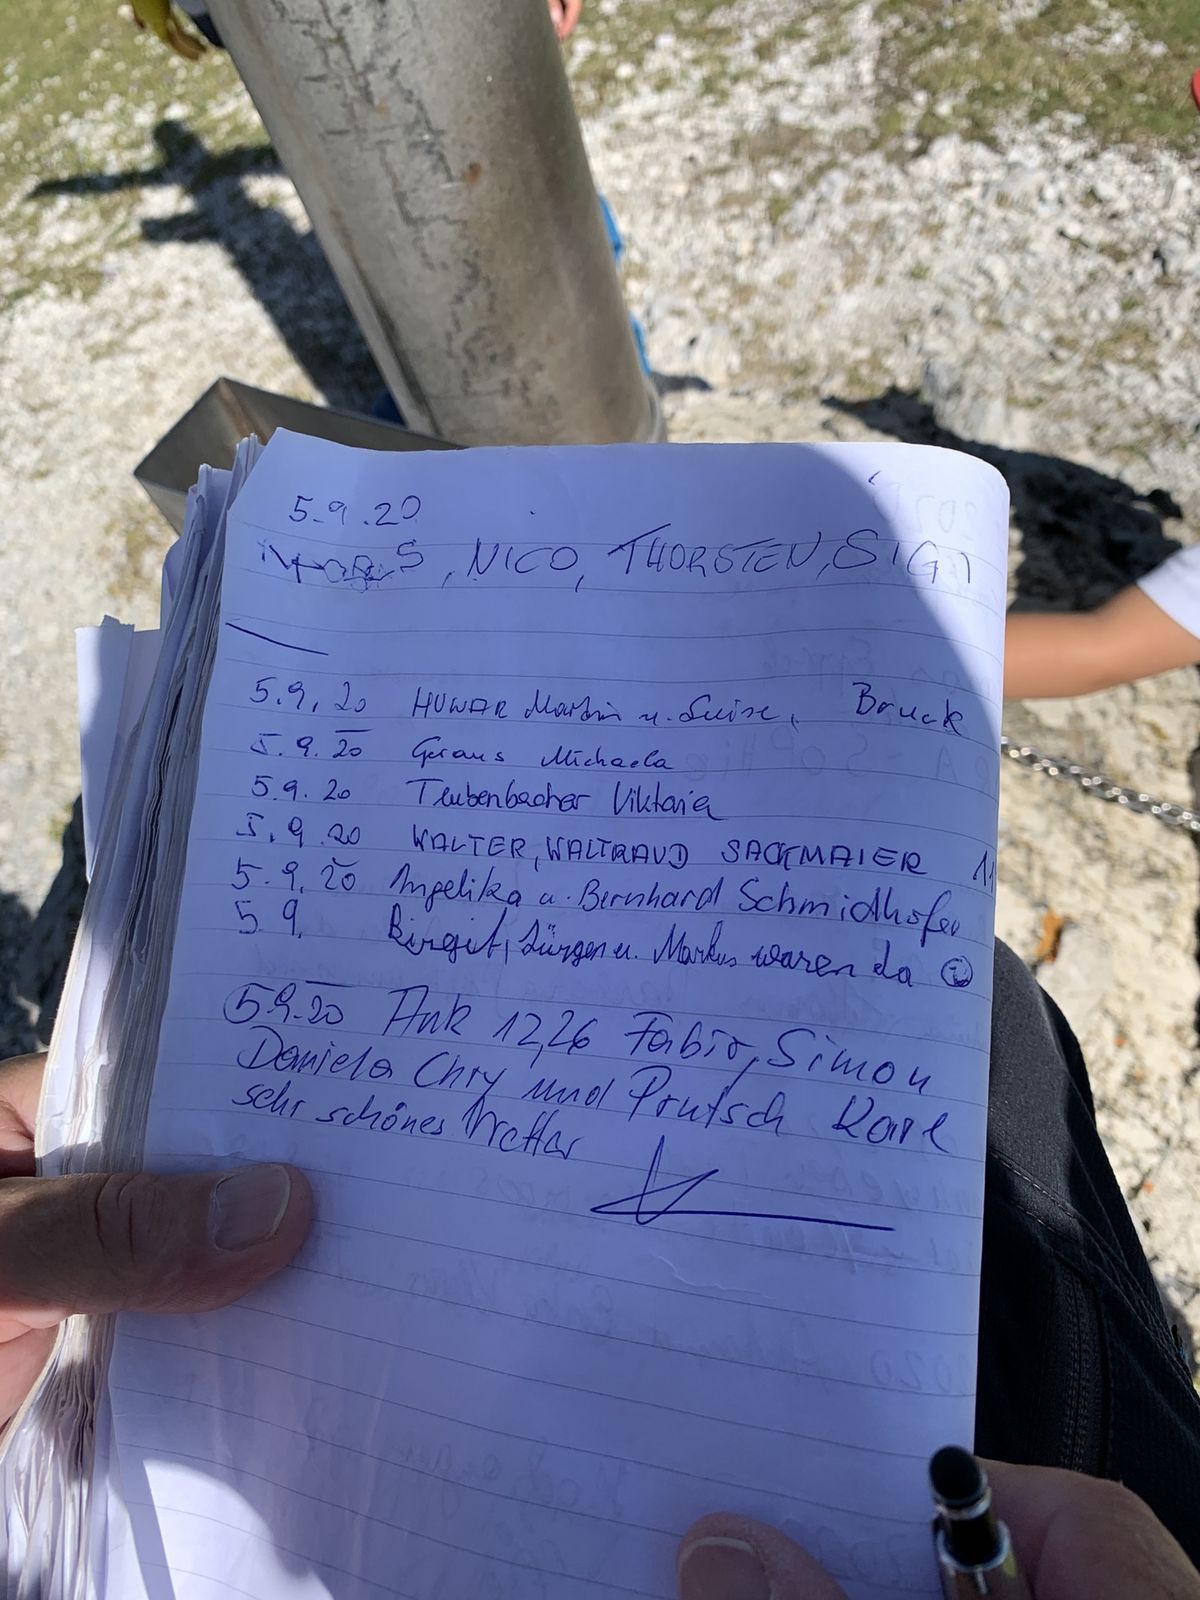 5.9.20
, NICO, THORSTEN, SIGI
5.9.20 HUWAR Martin u. Luise, Bruck
5.9.20 Michaela
5.9.20 Viktoria
5.9.20 WALTER, WALTRAUD SACKMAIER 11
5.9.20 Angelika u. Bernhard Schmidhofer
5.9. Birgit, Jürgen u. Markus waren da
5.9.20 Ank 12,26 Fabio, Simon
Daniela Chry und Prutsch Karl
sehr schönes Wetter